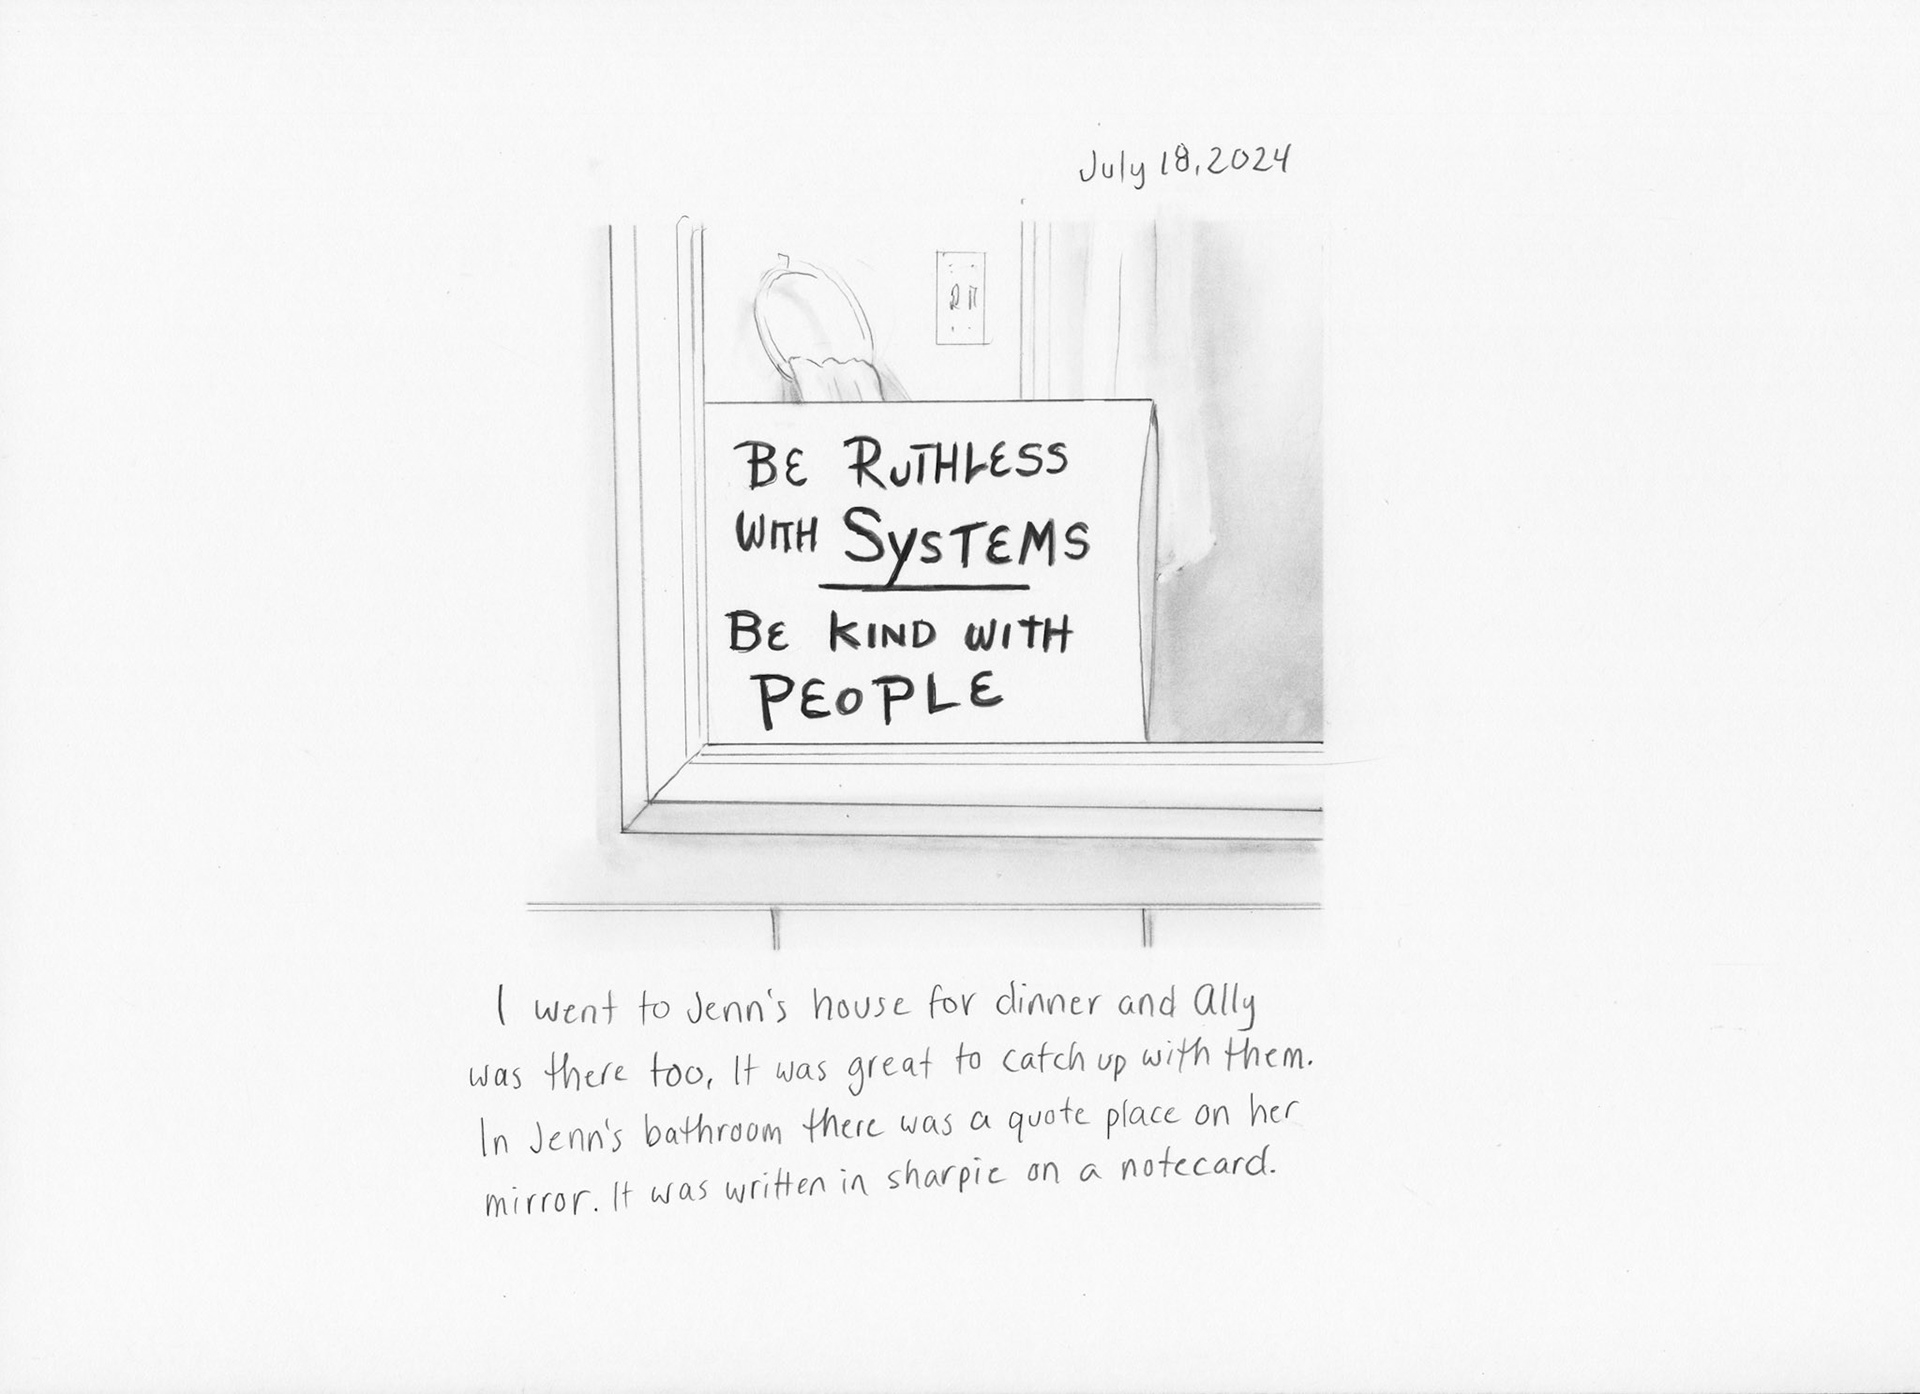 July 18, 2024
BE RUTHLESS
WITH SYSTEMS
BE KIND WITH
PEOPLE
I went to Jenn's house for dinner and Ally
was there too. It was great to catch up with them.
In Jenn's bathroom there was a quote place on her
mirror. It was written in sharpie on a notecard.